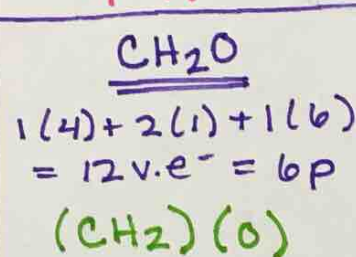 CH₂O
1(4) + 2(1) + 1(6)
= 12 v.e⁻ = 6p
(CH₂)(O)